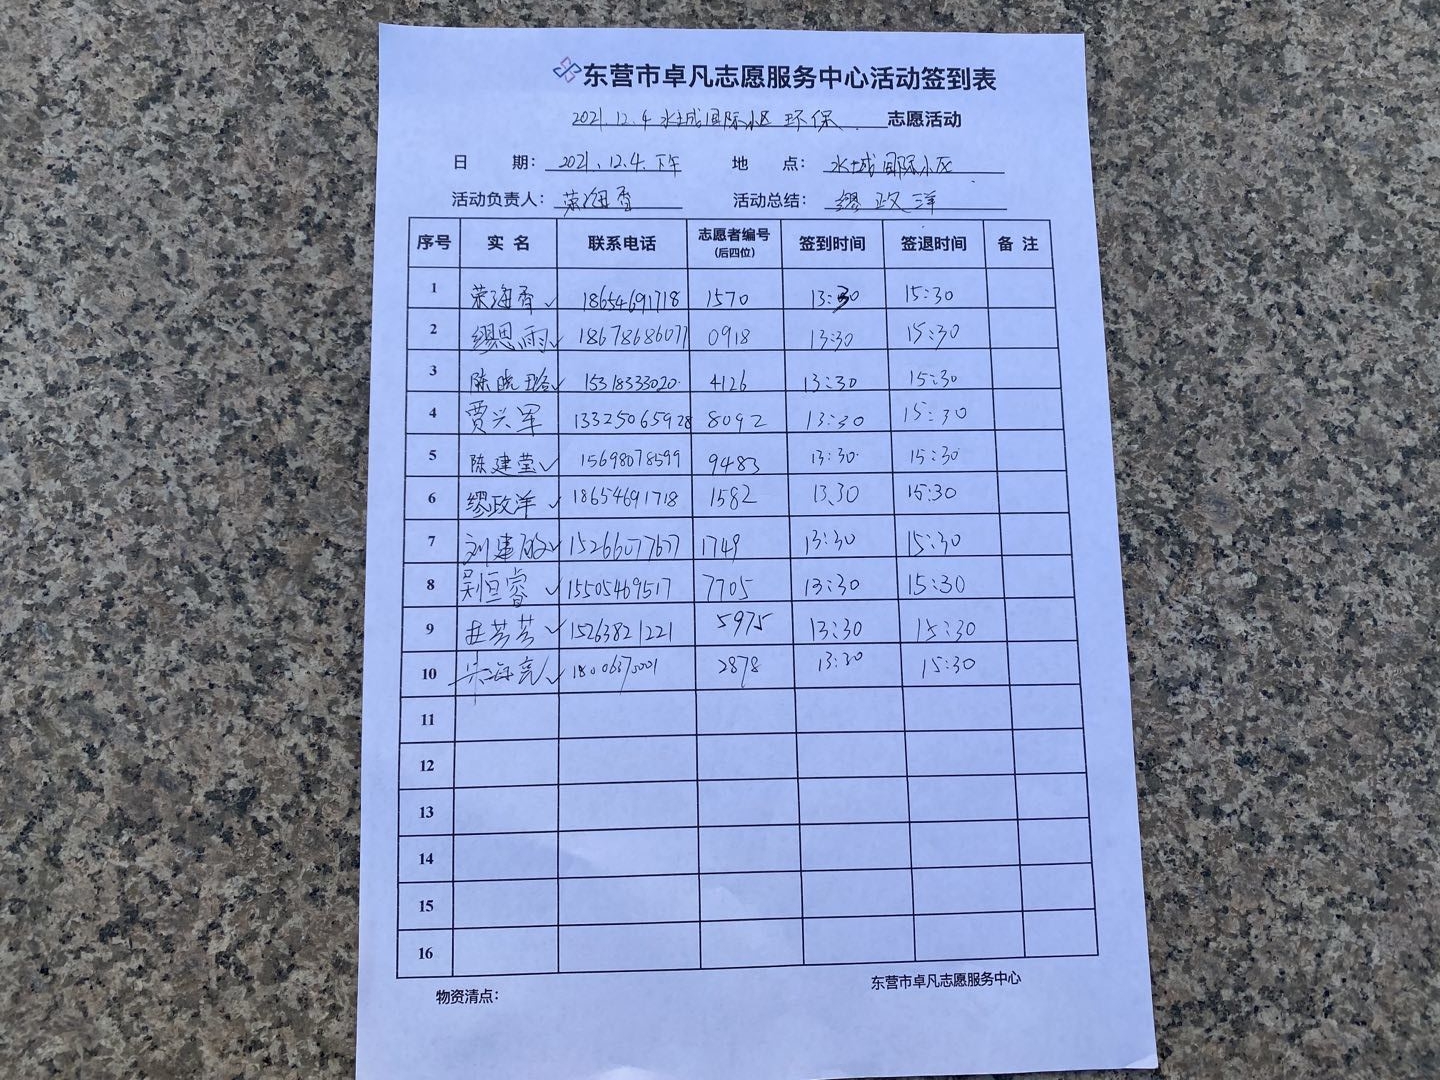 东营市卓凡志愿服务中心活动签到表
2021.12.4 水城国际小区 环保 志愿活动
日 期: 2021.12.4.下午 地 点: 水城国际小区
活动负责人: 荣海香 活动总结: 缪政洋
序号 实名 联系电话 志愿者编号 (后四位) 签到时间 签退时间 备注
1 荣海香 ✓ 18654691718 1570 13:30 15:30
2 缪思雨 ✓ 18678686077 0918 13:30 15:30
3 陈晓璐 ✓ 15318333020 4126 13:30 15:30
4 贾兴军 13325065928 8092 13:30 15:30
5 陈建莹 ✓ 15698078599 9483 13:30 15:30
6 缪政洋 ✓ 18654691718 1582 13.30 15:30
7 刘建 ✓ 15266077677 1749 13:30 15:30
8 吴恒睿 ✓ 15505469517 7705 13:30 15:30
9 芳芳 ✓ 15263821221 5975 13:30 15:30
10 海亮 ✓ 2878 13:30 15:30
11
12
13
14
15
16
物资清点:
东营市卓凡志愿服务中心